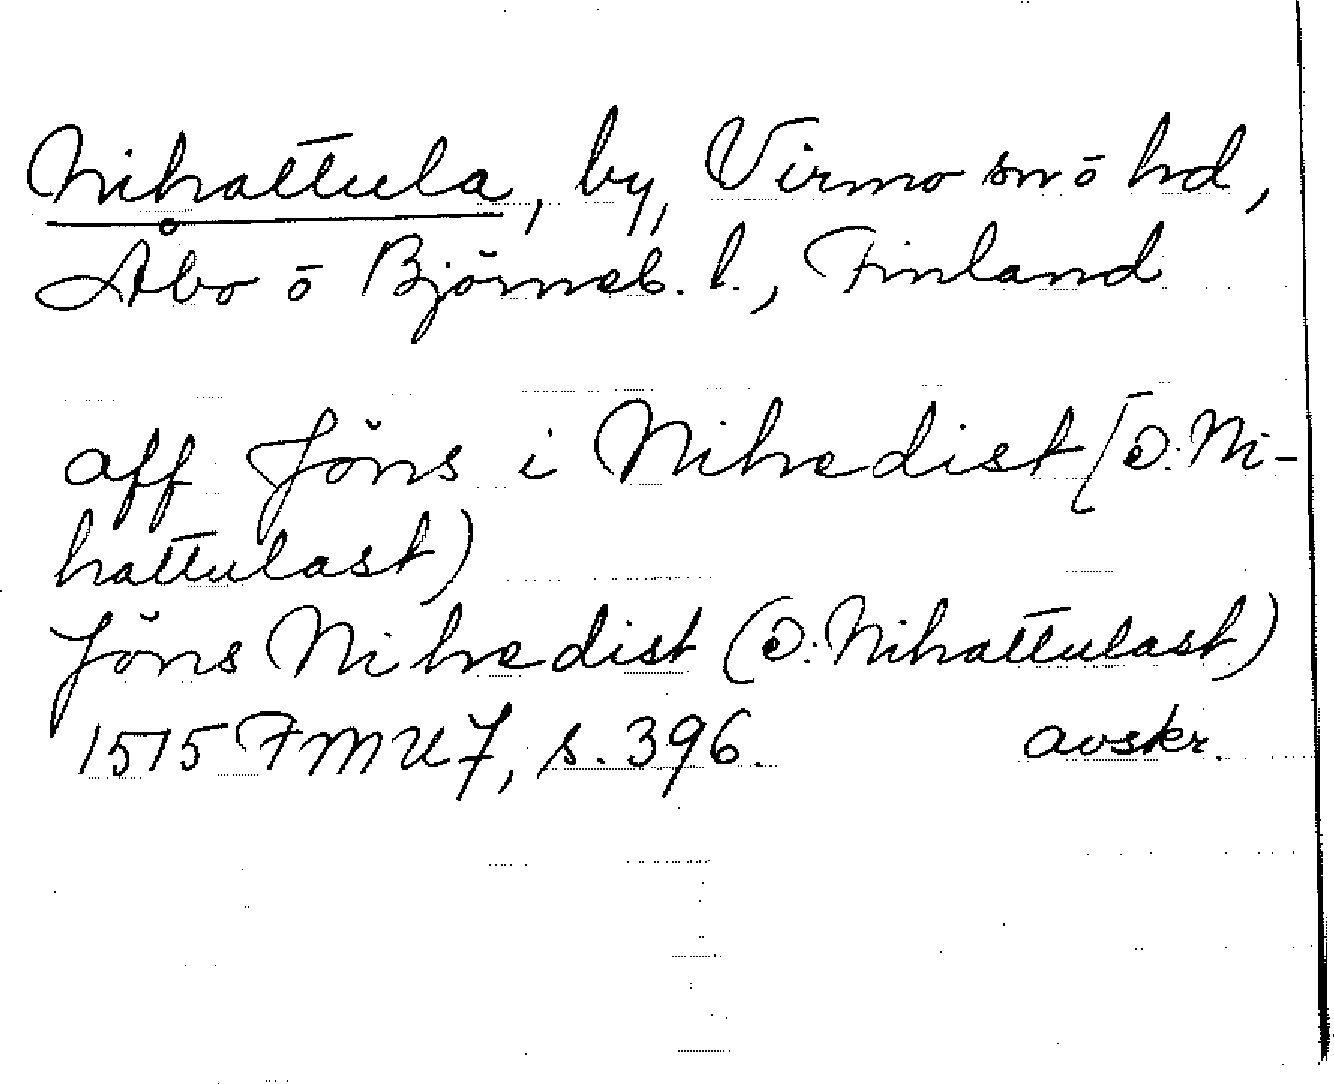 Nihattula, by, Virmo sn ō hd,
Åbo ō Björneb. l., Finland
aff Jöns i Nihedist [ɔ: Ni-
hattulast)
Jöns Nihedist (ɔ: Nihattulast)
1515 FMU 7, s. 396. avskr.